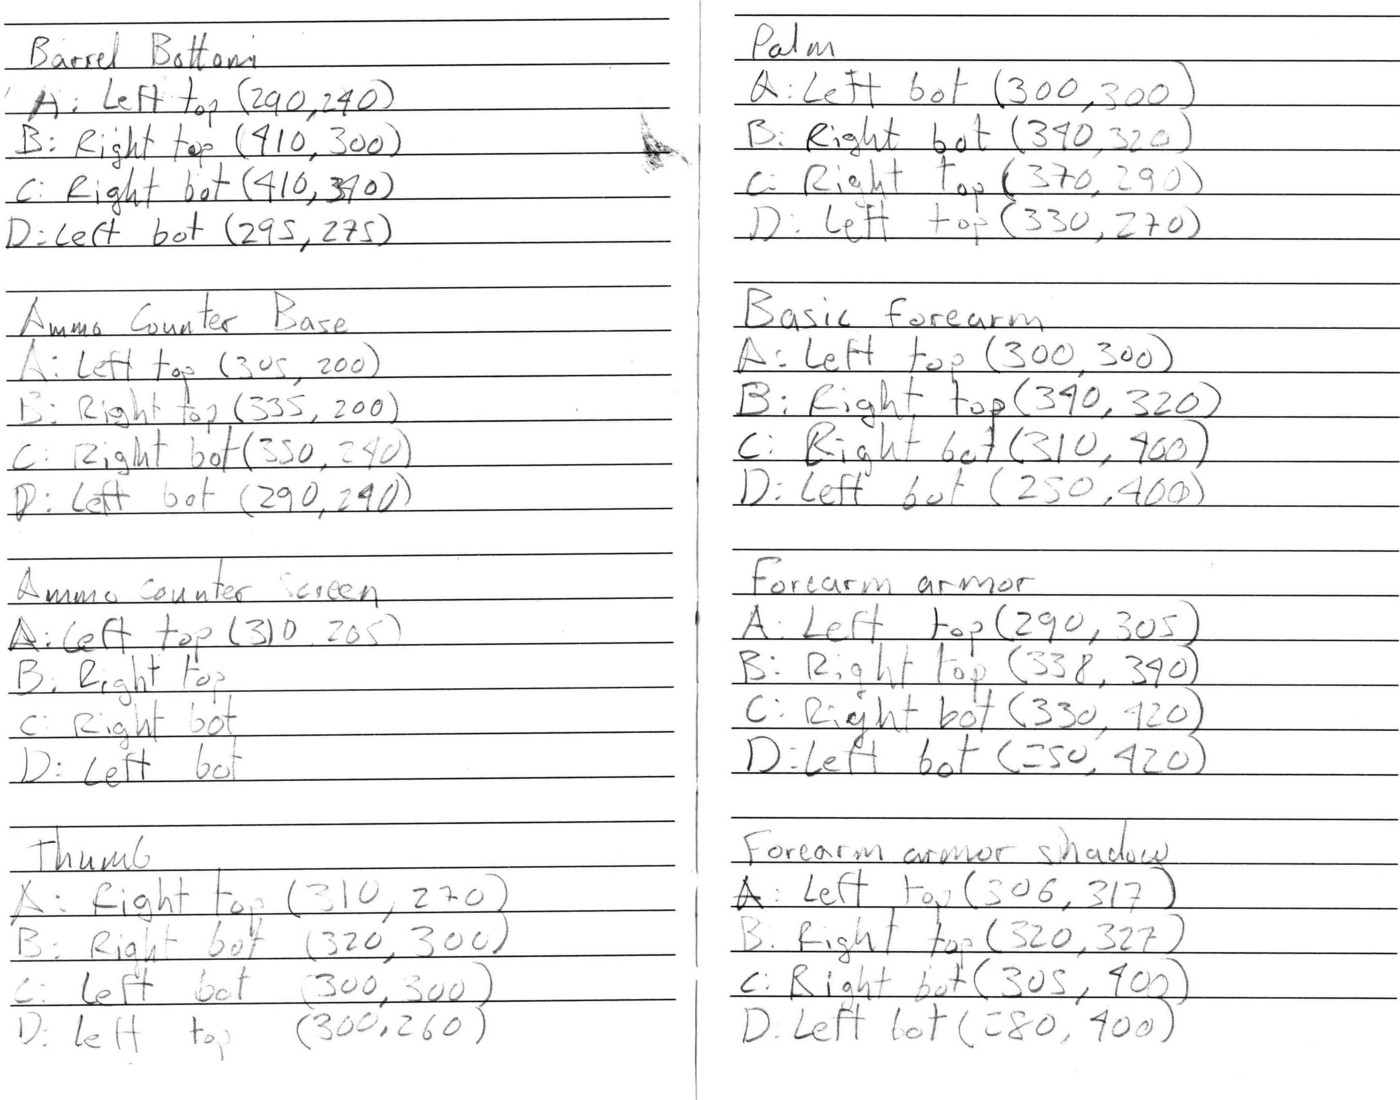 Barrel Bottom
A: Left top (290,240)
B: Right top (410,300)
C: Right bot (410,340)
D: Left bot (295,275)

Ammo Counter Base
A: Left top (305,200)
B: Right top (335,200)
C: Right bot (350,240)
D: Left bot (290,240)

Ammo counter screen
A: Left top (310,205)
B: Right top
C: Right bot
D: Left bot

Thumb
A: Right top (310,270)
B: Right bot (320,300)
C: Left bot (300,300)
D: Left top (300,260)

Palm
A: Left bot (300,300)
B: Right bot (340,320)
C: Right top (370,290)
D: Left top (330,270)

Basic forearm
A: Left top (300,300)
B: Right top (340,320)
C: Right bot (310,400)
D: Left bot (250,400)

Forearm armor
A: Left top (290,305)
B: Right top (338,340)
C: Right bot (330,420)
D: Left bot (250,420)

Forearm armor shadow
A: Left top (306,317)
B: Right top (320,327)
C: Right bot (305,400)
D: Left bot (280,400)